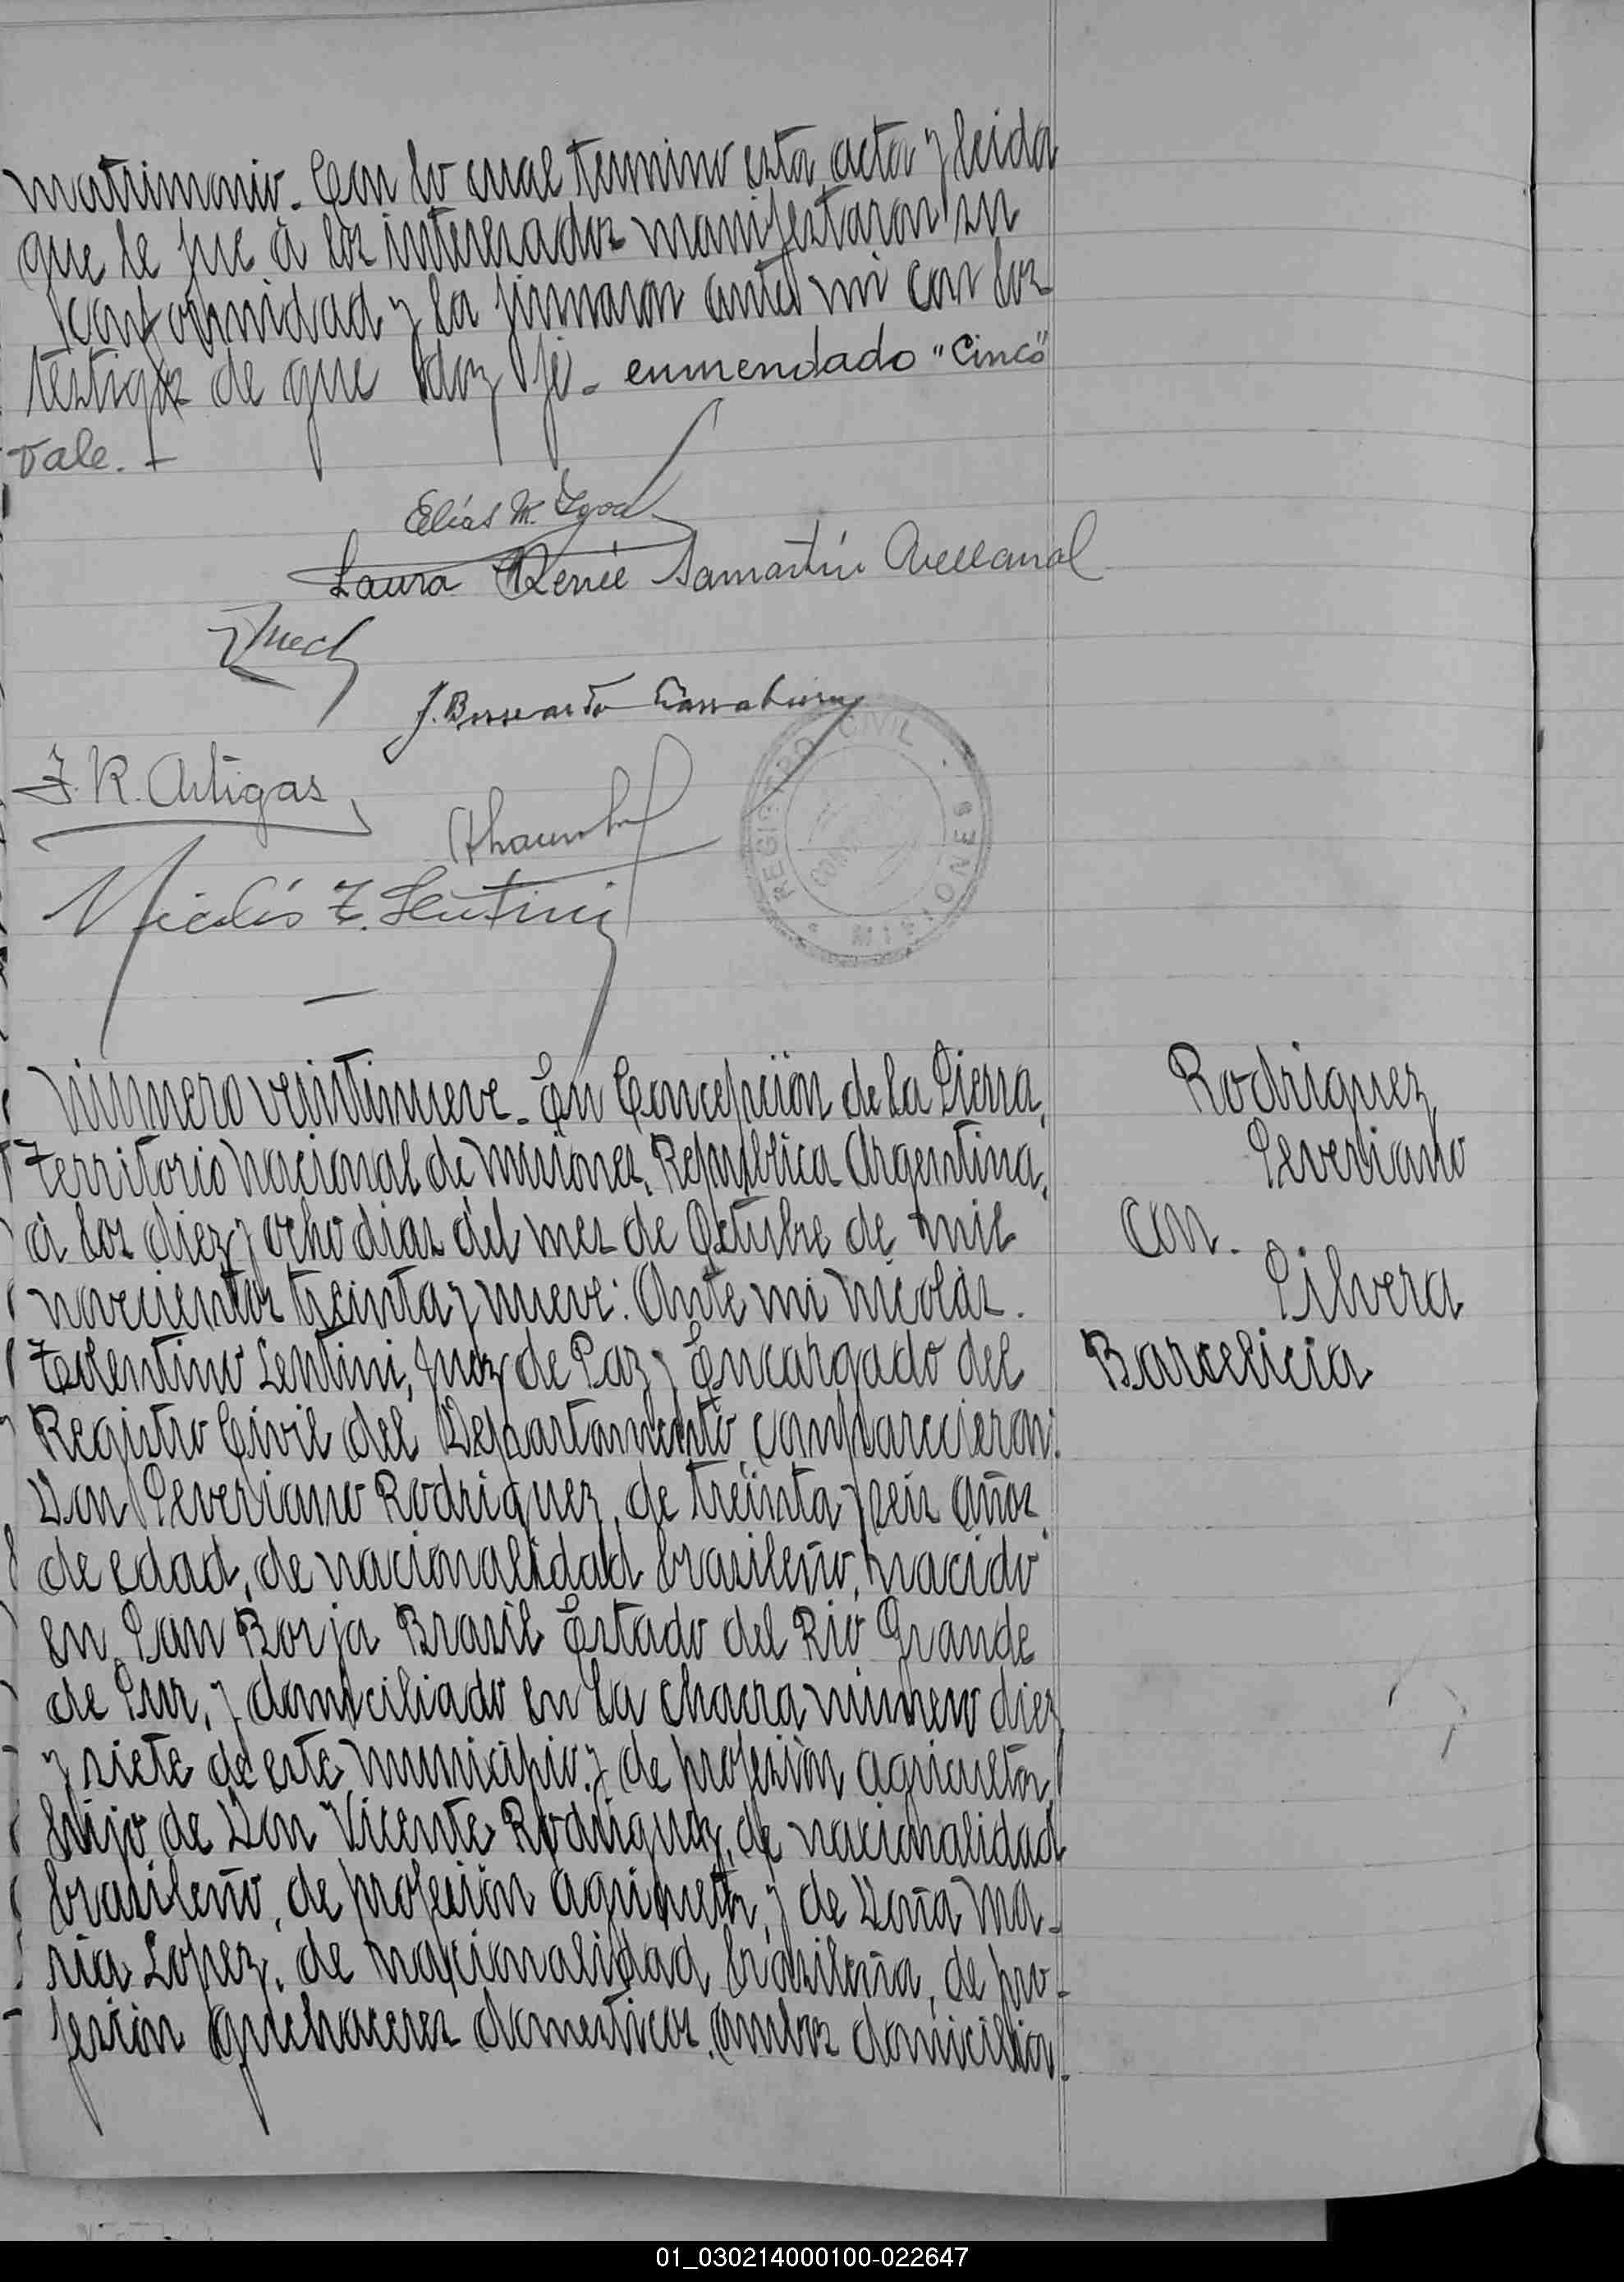 matrimonio. Con lo cual termino esta acta y leida
que le fue à los interesados manifestaron su
conformidad y la firmaron ante mi con los
testigos de que doy fé. enmendado "Cinco"
Vale.
Elías M.
Laura Renée Samartín Avellanal
J.
F. R. Artigas
REGISTRO CIVIL
MISIONES
Nicolás T. Lentini
Número veintinueve. En Concepción de la Sierra,
Territorio nacional de Misiones, Republica Argentina,
à los diez y ocho dias del mes de Octubre de mil
novecientos treinta y nueve: Ante mi Nicolás
Tolentino Lentini, Juez de Paz y Encargado del
Registro Civil del Departamento comparecieron:
Don Severiano Rodriguez, de treinta y seis años
de edad, de nacionalidad brasileño, nacido
en San Borja Brasil Estado del Rio Grande
de Sur, y domiciliado en la chacra número diez
y siete de este municipio y de profesión agricultor,
hijo de Don Vicente Rodriguez, de nacionalidad
brasileño, de profesión agricultor, y de Doña Ma-
ria Lopez, de nacionalidad brasileña, de pro-
fesión quehaceres domesticos, ambos domicilia-
Rodriguez
Severiano
con.
Silvera
Barcelicia
01_030214000100-022647